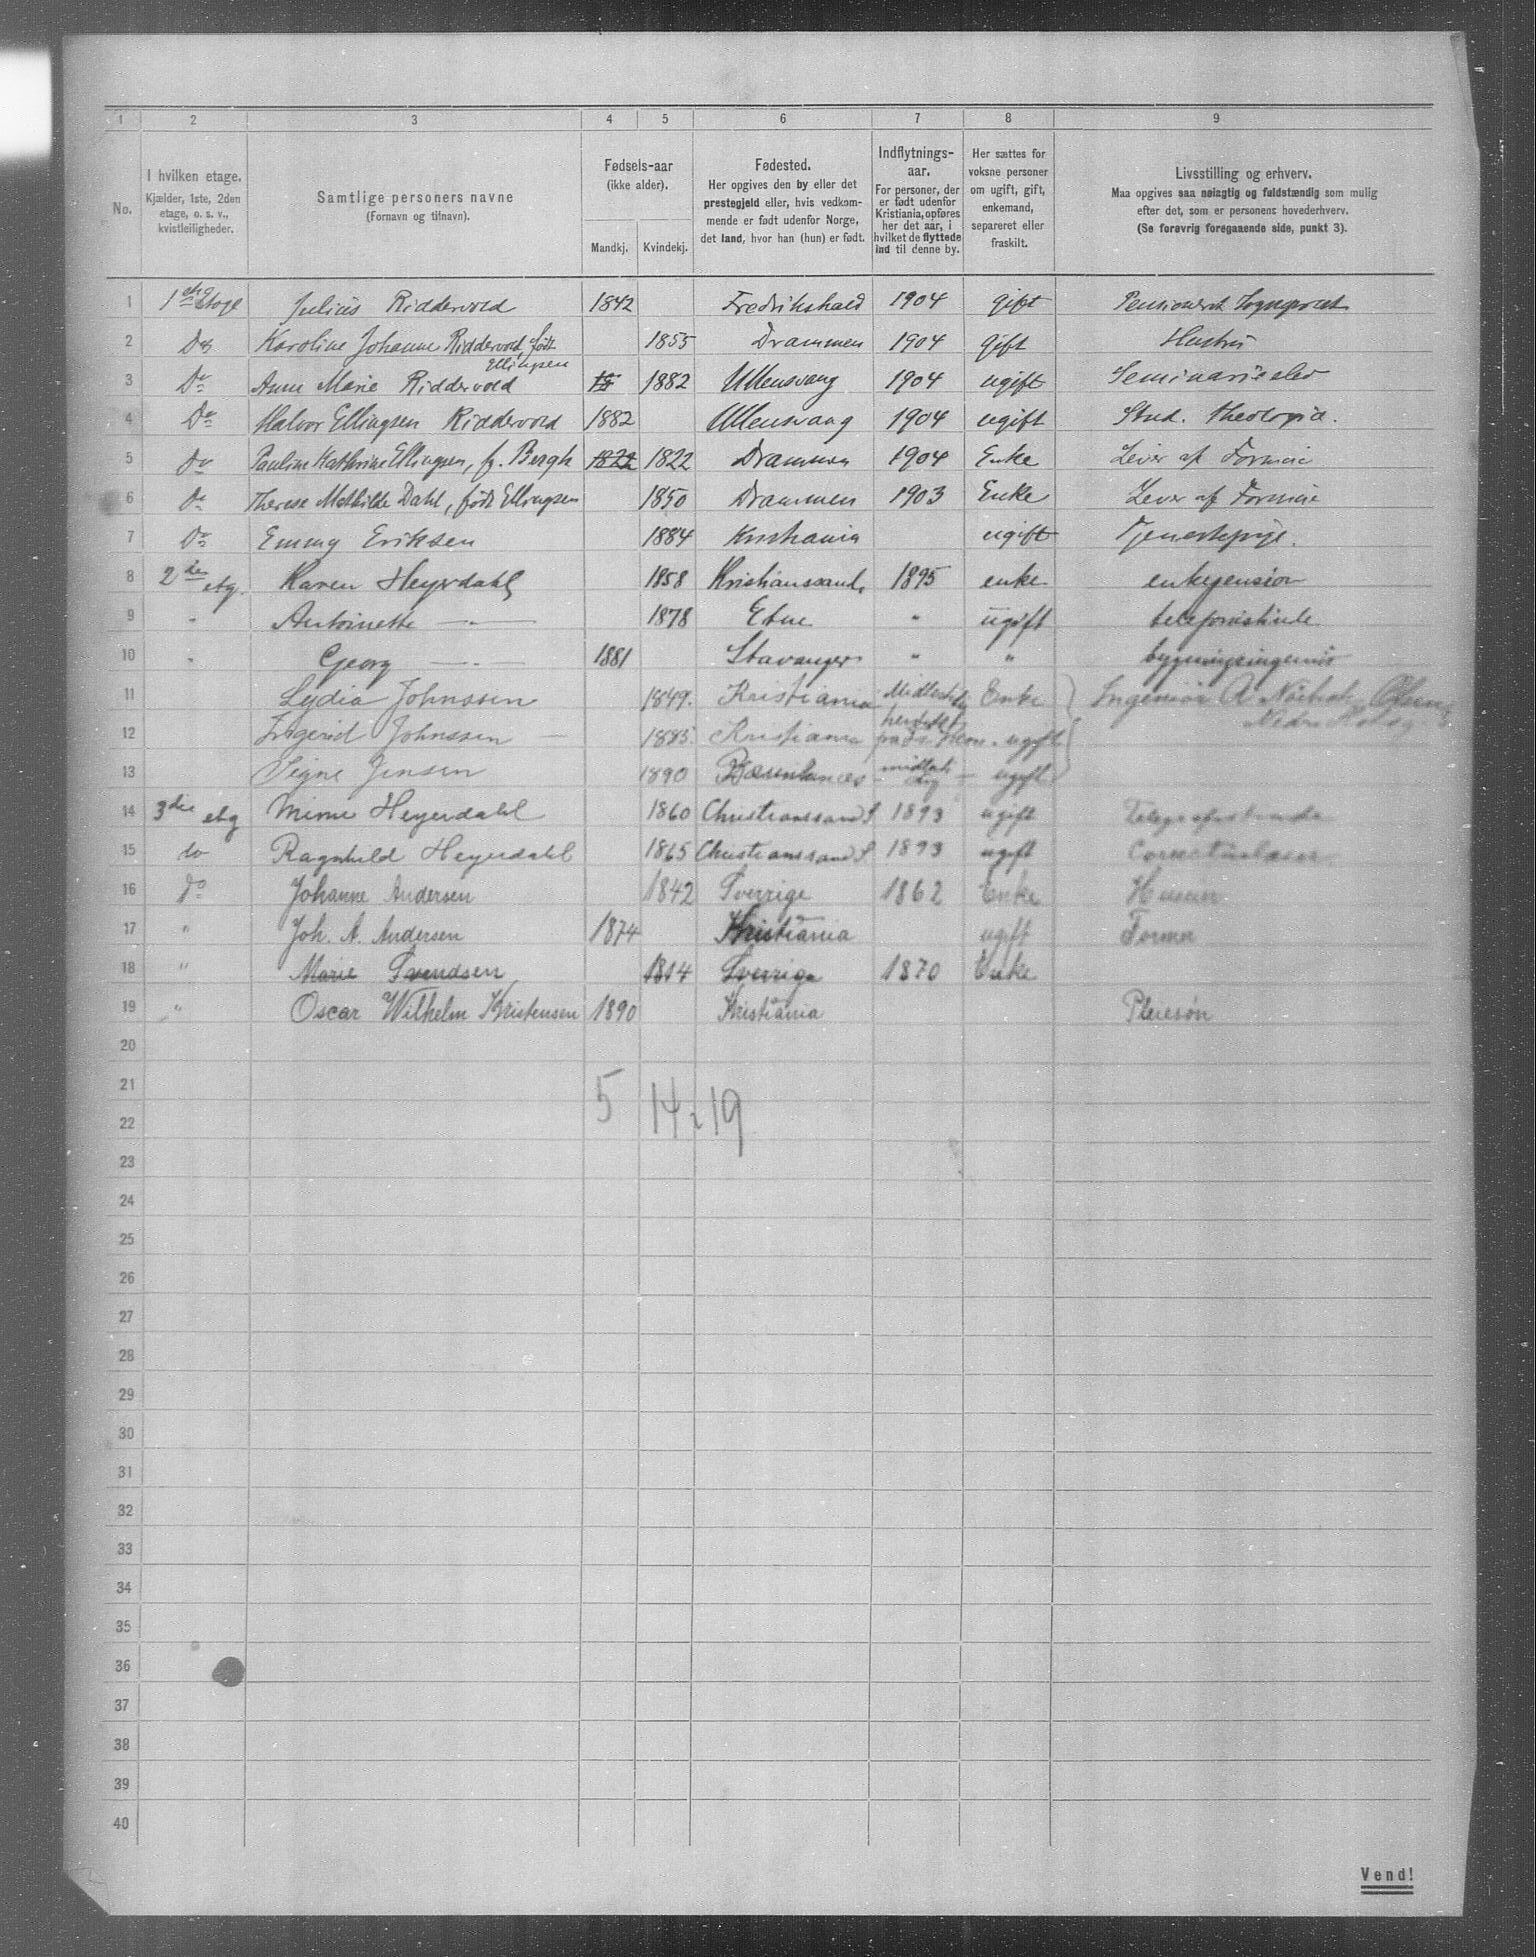 1 2 3 4 5 6 7 8 9
No.
I hvilken etage.
Kjælder, 1ste, 2den
etage, o. s. v.,
kvistleiligheder.
Samtlige personers navne
(Fornavn og tilnavn).
Fødsels-aar
(ikke alder).
Mandkj. Kvindekj.
Fødested.
Her opgives den by eller det
prestegjeld eller, hvis vedkom-
mende er født udenfor Norge,
det land, hvor han (hun) er født.
Indflytnings-
aar.
For personer, der
er født udenfor
Kristiania, opføres
her det aar, i
hvilket de flyttede
ind til denne by.
Her sættes for
voksne personer
om ugift, gift,
enkemand,
separeret eller
fraskilt.
Livsstilling og erhverv.
Maa opgives saa nøiagtig og fuldstændig som mulig
efter det, som er personens hovederhverv.
(Se forøvrig foregaaende side, punkt 3).
1 1ste Etage Julius Riddervold 1842 Fredrikshald 1904 gift Pensioneret Sogneprest
2 Do Karoline Johanne Riddervold, født Ellingsen 1855 Drammen 1904 gift Hustru
3 Do Anne Marie Riddervold 18 1882 Ullensvang 1904 ugift Seminarieelev
4 Do Halvor Ellingsen Riddervold 1882 Ullensvang 1904 ugift Stud. theologiæ.
5 Do Pauline Kathrine Ellingsen, f. Bergh 1822 1822 Drammen 1904 Enke Lever af Formue
6 Do Therese Mathilde Dahl, født Ellingsen 1850 Drammen 1903 Enke Lever af Formue
7 Do Emmy Eriksen 1884 Kristiania ugift Tjenestepige.
8 2den etg. Karen Heyerdahl 1858 Kristianssand 1895 enke enkepension
9 " Antoinette — " — 1878 Etne " ugift telefonistinde
10 " Georg — " — 1881 Stavanger " " bygningsingeniør
11 Lydia Johnssen 1849. Kristiania Midlertidig Enke Ingeniør A
12 Ingerid Johnssen 1885. Kristiania ugift
13 Signe Jensen 1890 midlertidig ugift
14 3die etg Mimi Heyerdahl 1860 Christianssand S 1893 ugift Telegrafistinde
15 do Ragnhild Heyerdahl 1865 Christianssand S 1893 ugift
16 do Johanne Andersen 1842 Sverrige 1862 Enke
17 " Joh. A. Andersen 1874 Kristiania ugift Former
18 " Marie Svendsen 1814 Sverrige 1870 Enke
19 " Oscar Wilhelm Kristensen 1890 Kristiania Pleiesøn
20
21
5 14 = 19
22
23
24
25
26
27
28
29
30
31
32
33
34
35
36
37
38
39
40
Vend!